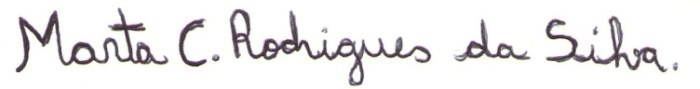 Marta C. Rodrigues da Silva.